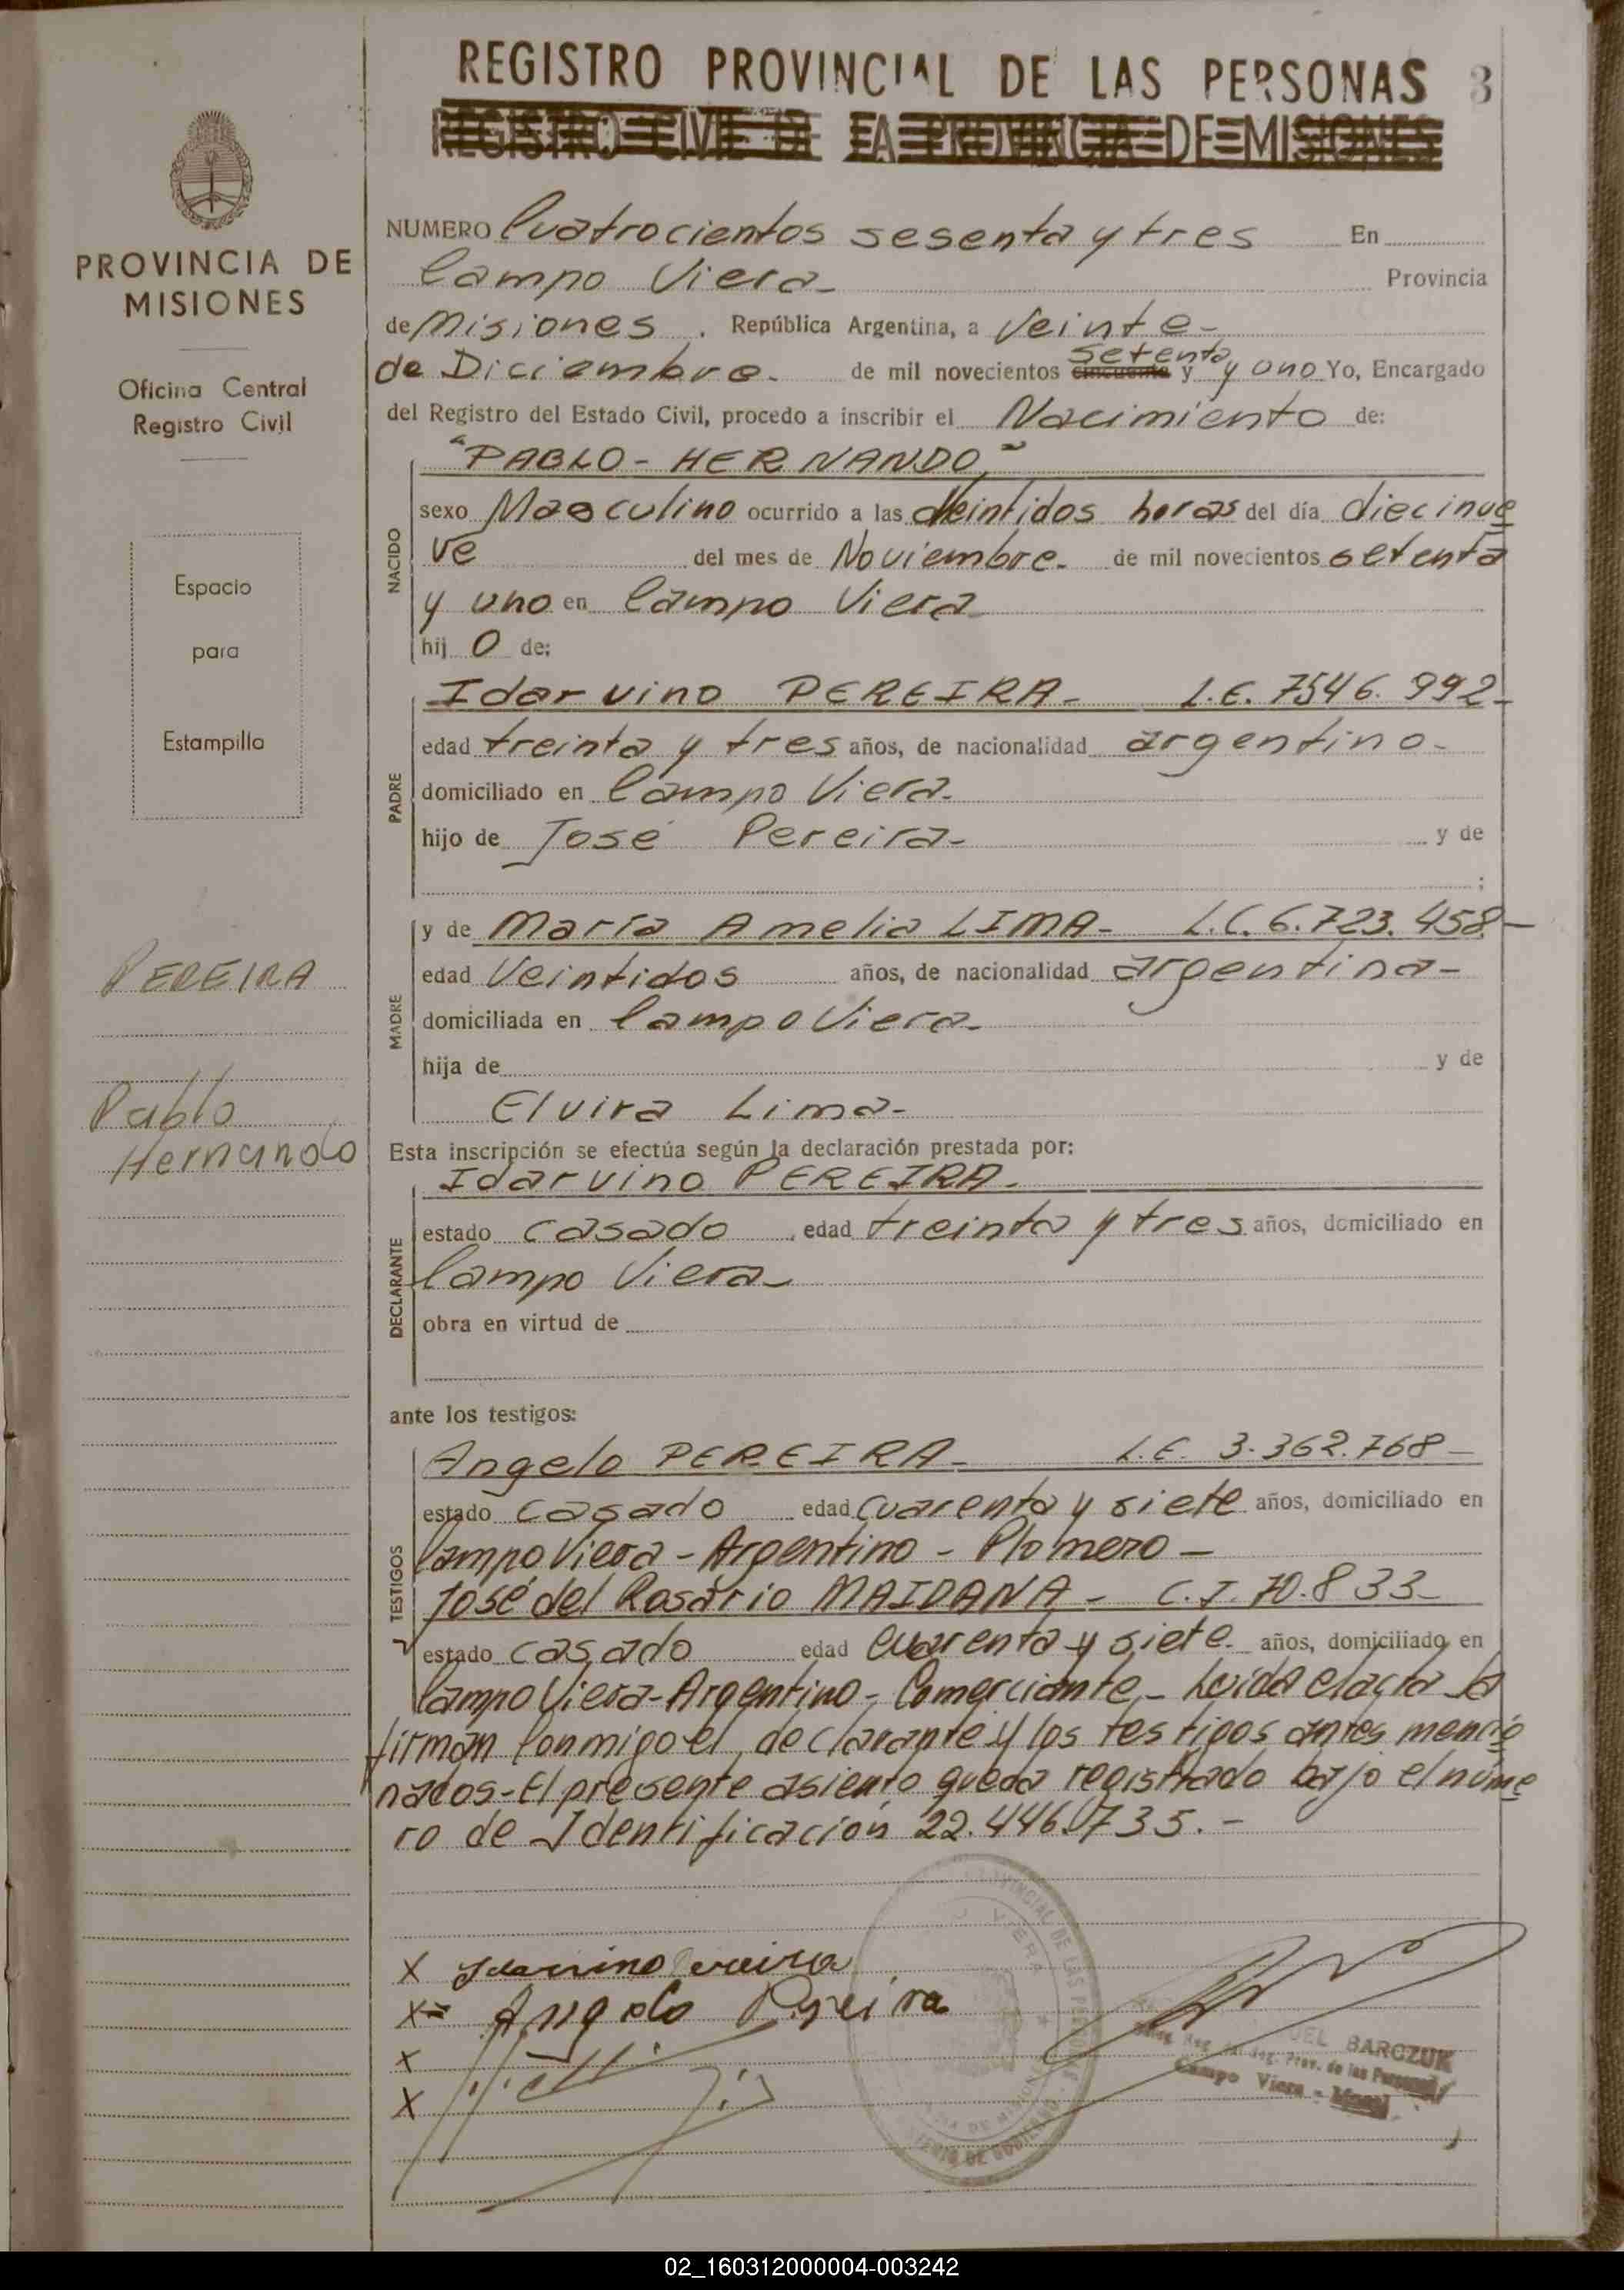 REGISTRO PROVINCIAL DE LAS PERSONAS 3
REGISTRO CIVIL DE LA PROVINCIA DE MISIONES
PROVINCIA DE
MISIONES
Oficina Central
Registro Civil
Espacio
para
Estampilla
PEREIRA
Pablo
Hernando
NUMERO Cuatrocientos sesenta y tres En
Campo Viera- Provincia
de Misiones . República Argentina, a Veinte-
setenta
de Diciembre.- de mil novecientos cincuenta y y uno Yo, Encargado
del Registro del Estado Civil, procedo a inscribir el Nacimiento de:
"PABLO - HERNANDO"
NACIDO
sexo Masculino ocurrido a las Veintidos horas del día diecinue
ve del mes de Noviembre.- de mil novecientos setenta
y uno en Campo Viera
hij o de:
PADRE
Idarvino PEREIRA- L.E. 7546.992-
edad treinta y tres años, de nacionalidad argentino-
domiciliado en Campo Viera-
hijo de José Pereira- y de
;
MADRE
y de María Amelia LIMA- L.C. 6.723.458-
edad Veintidos años, de nacionalidad argentina-
domiciliada en Campo Viera-
hija de y de
Elvira Lima-
Esta inscripción se efectúa según la declaración prestada por:
DECLARANTE
Idarvino PEREIRA-
estado casado , edad treinta y tres años, domiciliado en
Campo Viera-
obra en virtud de
ante los testigos:
TESTIGOS
Angelo PEREIRA- L.E. 3.362.768-
estado casado edad cuarenta y siete años, domiciliado en
Campo Viera - Argentino - Plomero -
José del Rosario MAIDANA - C.I. 70.833-
estado casado edad cuarenta y siete- años, domiciliado en
Campo Viera - Argentino - Comerciante - Leida el acta la
firman Conmigo el declarante y los testigos antes mencio
nados - El presente asiento queda registrado bajo el núme
ro de Identificación 22.446.735.-
X Idarvino Pereira
X= Angelo Pereira
X
X
PROVINCIAL DE LAS PERSONAS
VIERA
UEL BARCZUK
Prov. de las Personas
Campo Viera - Mnes.
02_160312000004-003242